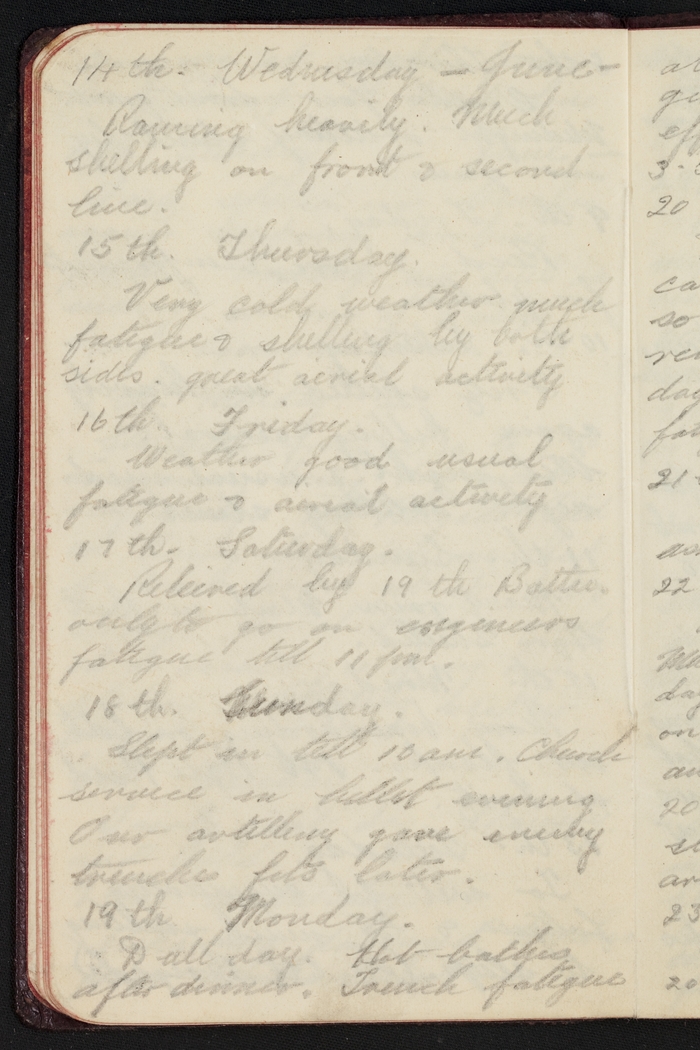 14th. Wednesday - June -
Raining heavily. Much
shelling on front & second
line.
15th. Thursday.
Very cold weather much
fatigue & shelling by both
sides. great aerial activity
16th. Friday.
Weather good usual
fatigue & aerial activity
17th. Saturday.
Releived by 19th Batta.
only to go on engineers
fatigue till 11 pm.
18th. Sunday.
Slept in till 10 am. Church
service in billet evening
Our artillery gave enemy
trenches fits later.
19th Monday.
D all day. Hot baths
after dinner. Trench fatigue
3
20
so
day
21
22
day
on
20
23
20